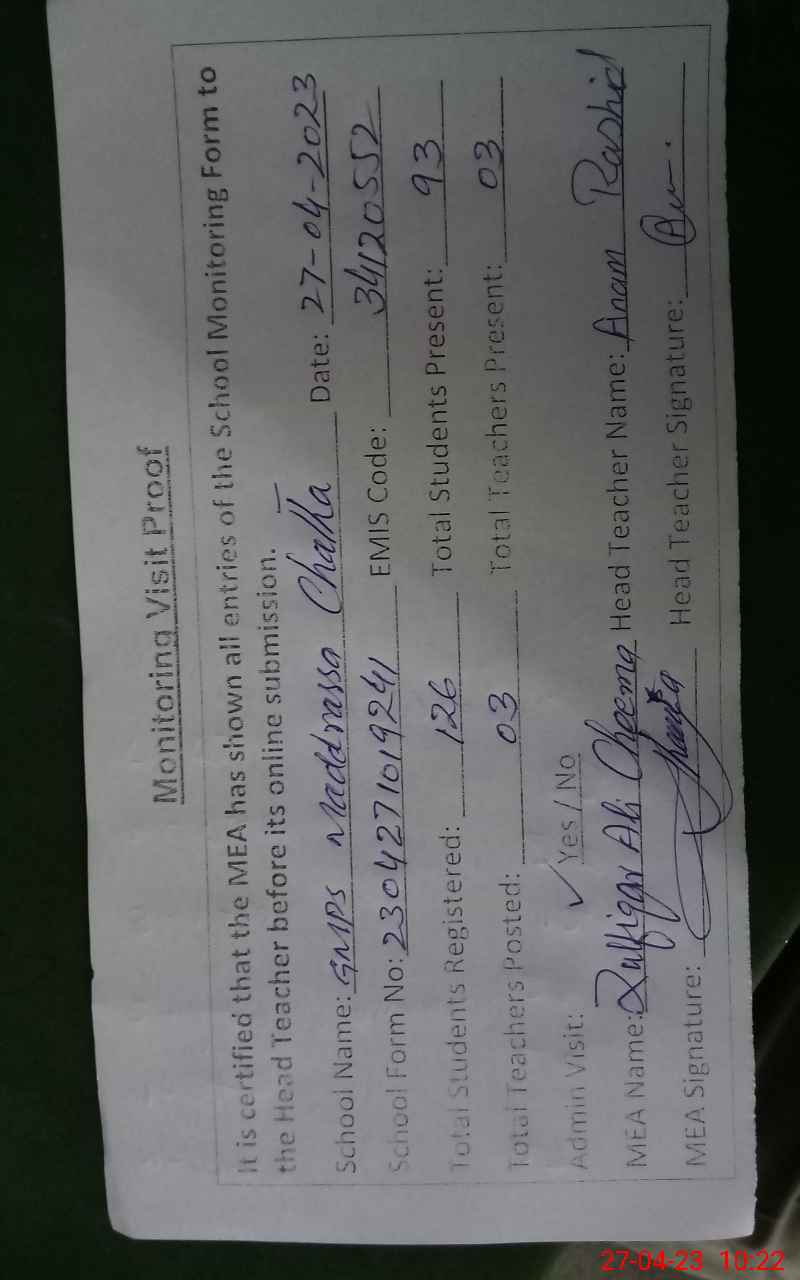 Monitoring Visit Proof
It is certified that the MEA has shown all entries of the School Monitoring Form to
the Head Teacher before its online submission.
School Name: GMPS Maddrassa Chatha Date: 27-04-2023
School Form No: 2304271019241 EMIS Code: 34120552
Total Students Registered: 126 Total Students Present: 93
Total Teachers Posted: 03 Total Teachers Present: 03
Admin Visit: ✓ Yes / No
MEA Name: Zulfiqar Ali Cheema Head Teacher Name: Anam Rashid
MEA Signature: Head Teacher Signature:
27-04-23 10:22